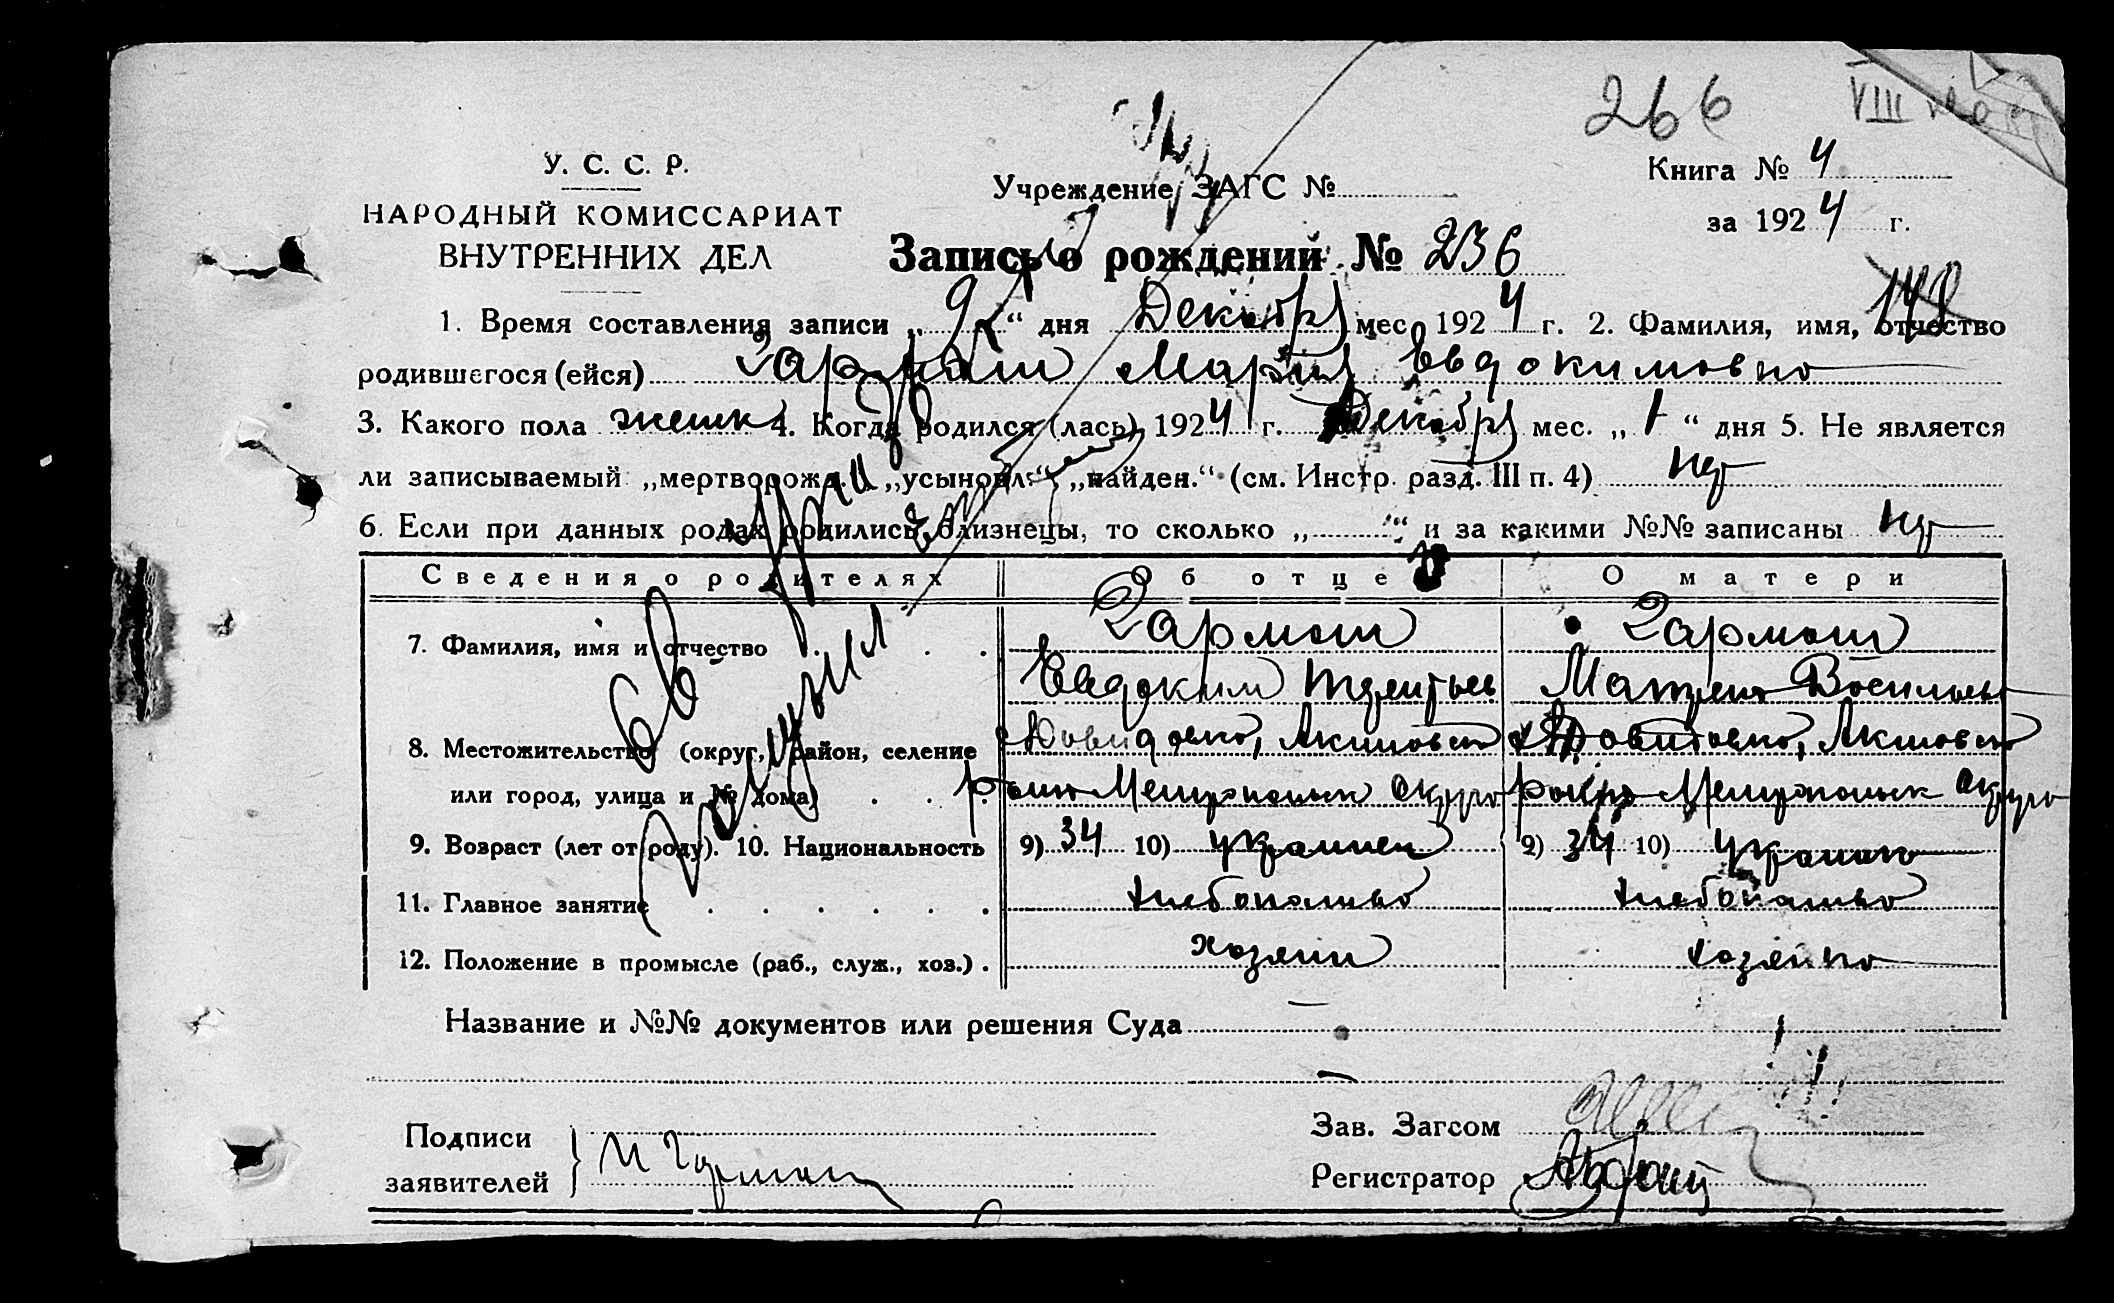 266
VIII
У. С. С. Р.
НАРОДНЫЙ КОМИССАРИАТ
ВНУТРЕННИХ ДЕЛ
Учреждение ЗАГС №
Книга № 4
за 1924 г.
Запись о рождений № 236
148
1. Время составления записи „9“ дня Декабря мес. 1924 г. 2. Фамилия, имя, отчество
родившегося (ейся) Гармаш Мария Евдокимовна
3. Какого пола женск 4. Когда родился (лась) 1924 г. Декабря мес. „1“ дня 5. Не является
ли записываемый „мертворожд.“ „усыновл.“ „найден.“ (см. Инстр. разд. III п. 4) нет
6. Если при данных родах родились близнецы, то сколько „ “ и за какими №№ записаны нет
Сведения о родителях Об отце О матери
7. Фамилия, имя и отчество Гармаш Гармаш
Евдоким Терентьев Матрена Васильев
8. Местожительство (округ, район, селение Акимовск Акимовск
или город, улица и № дома) Мелитопольск округа Мелитопольск округа
9. Возраст (лет от роду). 10. Национальность 9) 34 10) украинец 9) 34 10) украинка
11. Главное занятие хлебопашество хлебопашество
12. Положение в промысле (раб., служ., хоз.) хозяин хозяйка
Название и №№ документов или решения Суда
Подписи
заявителей
Зав. Загсом
Регистратор